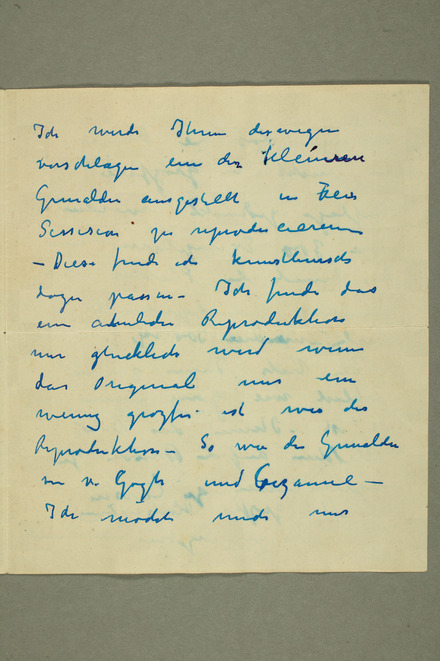 Ich werde Ihnen deswegen
vorschlagen ein der kleineren
Gemälden ausgestellt in Freie
Sezession zu reproducieren
– Diese finde ich
dazu passen – Ich finde das
ein ähnliche Reproduktion
nur glücklich wird wenn
das Original nur ein
wenig größer ist wie die
Reproduktion – So wie die Gemälden
von v. Gogh und Cezanne –
Ich möchte mich nur